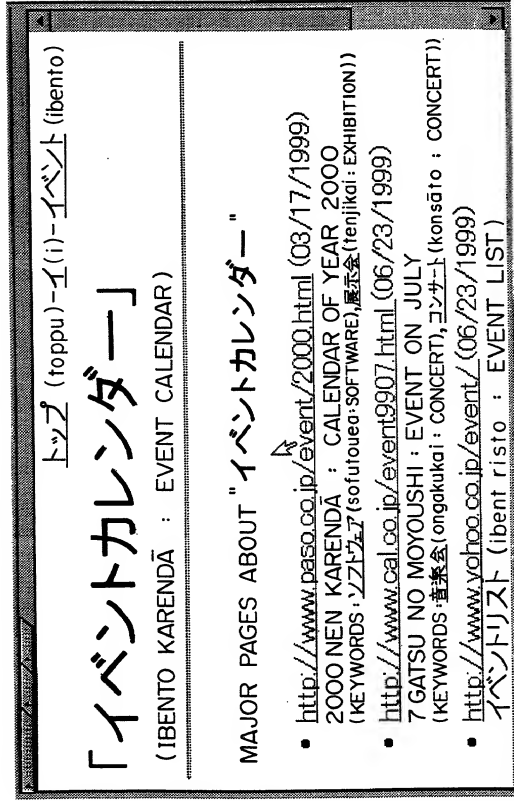 トップ (toppu)-イ(i)-イベント (ibento)
「イベントカレンダー」
(IBENTO KARENDĀ : EVENT CALENDAR)
MAJOR PAGES ABOUT "イベントカレンダー"
• http://www.paso.co.jp/event/2000.html (03/17/1999)
2000 NEN KARENDĀ : CALENDAR OF YEAR 2000
(KEYWORDS:ソフトウェア(sofutouea:SOFTWARE),展示会(tenjikai:EXHIBITION))
• http://www.cal.co.jp/event9907.html (06/23/1999)
7 GATSU NO MOYOUSHI : EVENT ON JULY
(KEYWORDS:音楽会(ongakukai : CONCERT),コンサート(konsāto ; CONCERT))
• http://www.yohoo.co.jp/event/ (06/23/1999)
イベントリスト (ibent risto : EVENT LIST)